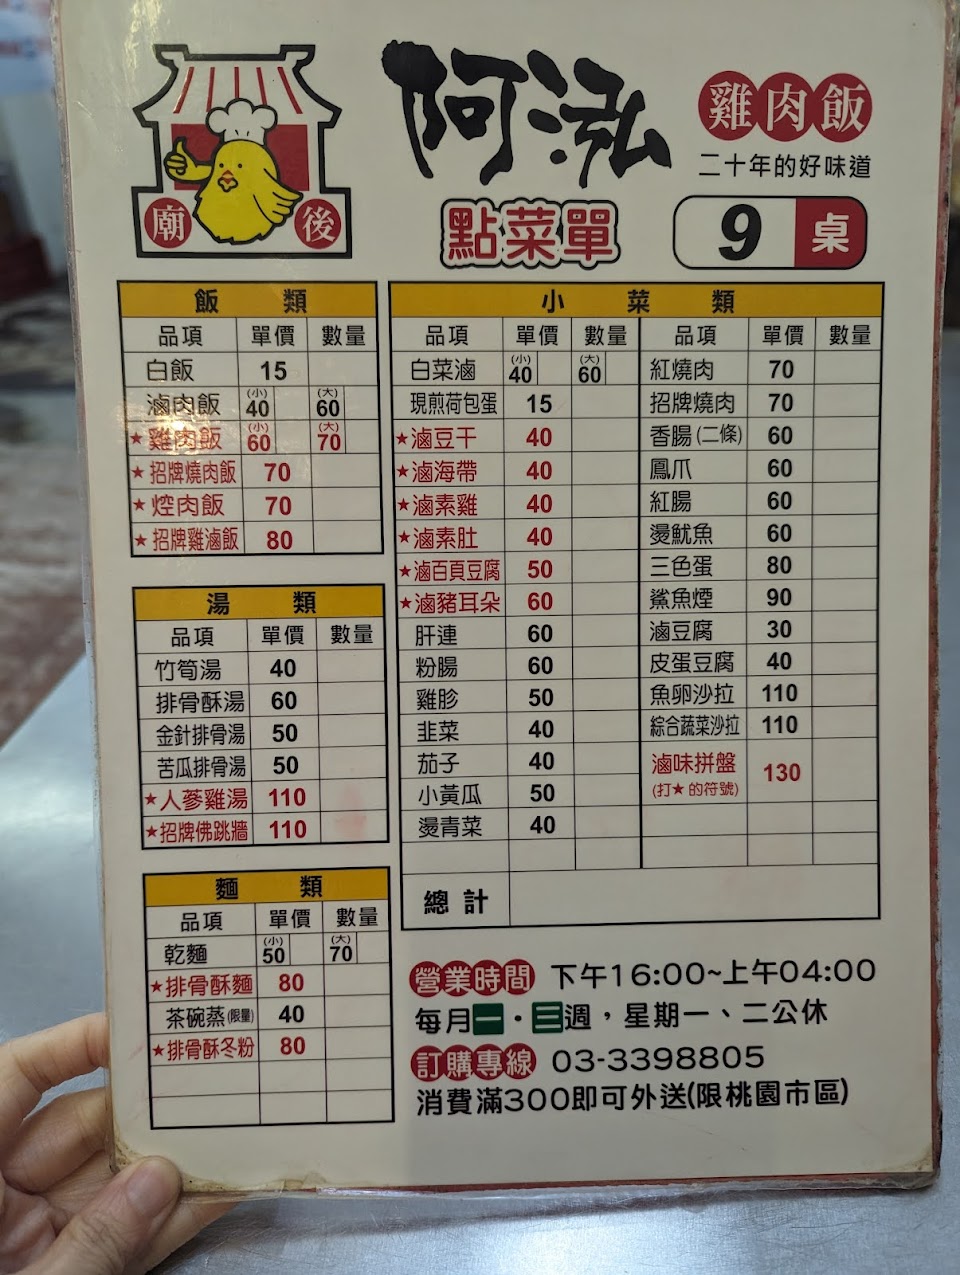 阿泓
雞肉飯
二十年的好味道
廟後
點菜單
9 桌
飯類
品項 單價 數量
白飯 15
滷肉飯 (小)40 (大)60
★雞肉飯 (小)60 (大)70
★招牌燒肉飯 70
★焢肉飯 70
★招牌雞滷飯 80
湯類
品項 單價 數量
竹筍湯 40
排骨酥湯 60
金針排骨湯 50
苦瓜排骨湯 50
★人蔘雞湯 110
★招牌佛跳牆 110
麵類
品項 單價 數量
乾麵 (小)50 (大)70
★排骨酥麵 80
茶碗蒸(限量) 40
★排骨酥冬粉 80
小菜類
品項 單價 數量
白菜滷 (小)40 (大)60
現煎荷包蛋 15
★滷豆干 40
★滷海帶 40
★滷素雞 40
★滷素肚 40
★滷百頁豆腐 50
★滷豬耳朵 60
肝連 60
粉腸 60
雞胗 50
韭菜 40
茄子 40
小黃瓜 50
燙青菜 40
品項 單價 數量
紅燒肉 70
招牌燒肉 70
香腸(二條) 60
鳳爪 60
紅腸 60
燙魷魚 60
三色蛋 80
鯊魚煙 90
滷豆腐 30
皮蛋豆腐 40
魚卵沙拉 110
綜合蔬菜沙拉 110
滷味拼盤 130
(打★的符號)
總計
營業時間 下午16:00~上午04:00
每月一・三週，星期一、二公休
訂購專線 03-3398805
消費滿300即可外送(限桃園市區)